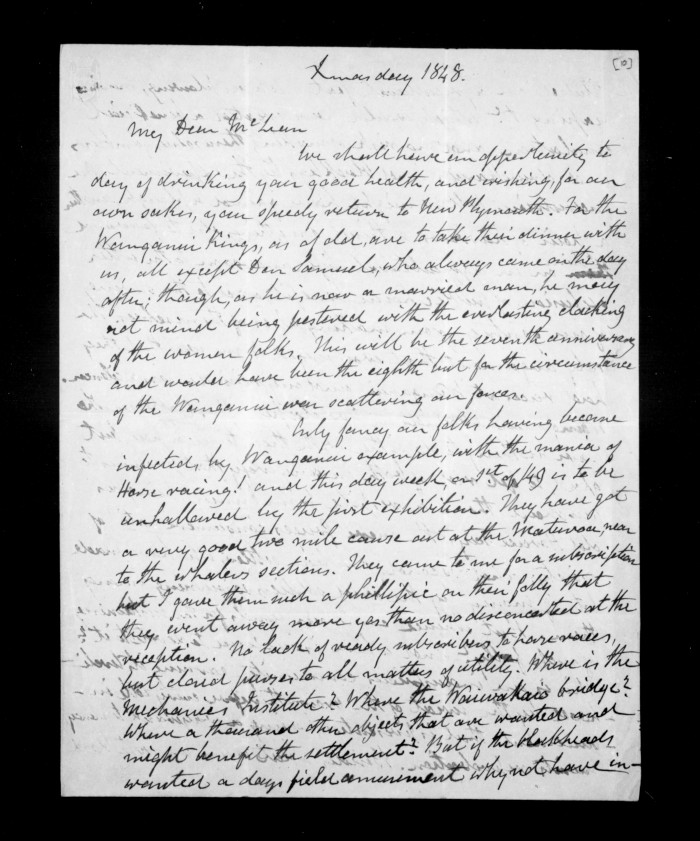 [0]
Xmas day 1848.
My Dear McLean
We shall have an opportunity to
day of drinking your good health, and wishing, for our
own sakes, your speedy return to New Plymouth. For the
Wanganui Kings, as of old, are to take their dinner with
us, all except Dan Samuels, who always came on the day
after; though, as he is now a married man, he may
not mind being pestered with the everlasting clacking
of the women folks. This will be the seventh anniversary
and would have been the eighth but for the circumstance
of the Wanganui war scattering our forces.
Only fancy our folks having become
infected, by Wanganui example, with the mania of
Horse racing! and this day week, on 1st of /49 is to be
unhallowed by the first exhibition. They have got
a very good two mile course out at the near
to the whalers sections. They came to me for a subscription
but I gave them such a phillipic on their folly that
they went away more yes than no disconcerted at the
reception. No lack of ready subscribers to horse races,
but closed purses to all matters of utility. Where is the
Mechanics Institute? Where the Waiwakaio bridge?
Where a thousand other objects that are wanted and
might benefit the settlement? But if the blockheads
wanted a days field amusement why not have in-